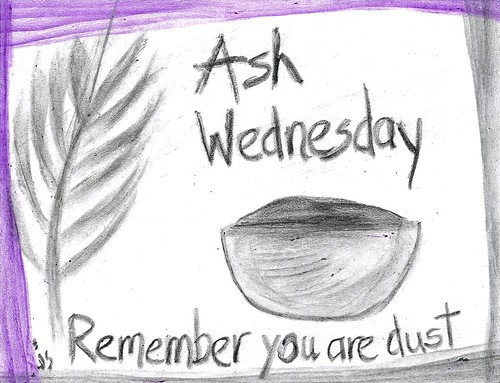 Ash
Wednesday
Remember you are dust